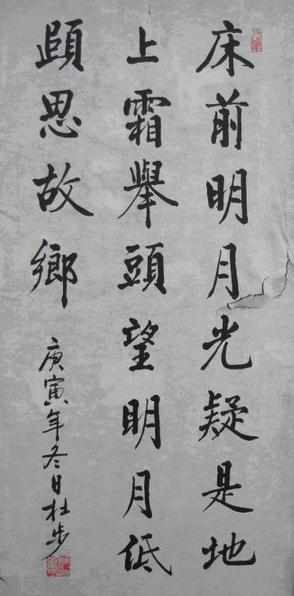 床前明月光疑是地
上霜舉頭望明月低
頭思故鄉
庚寅年冬日杜步